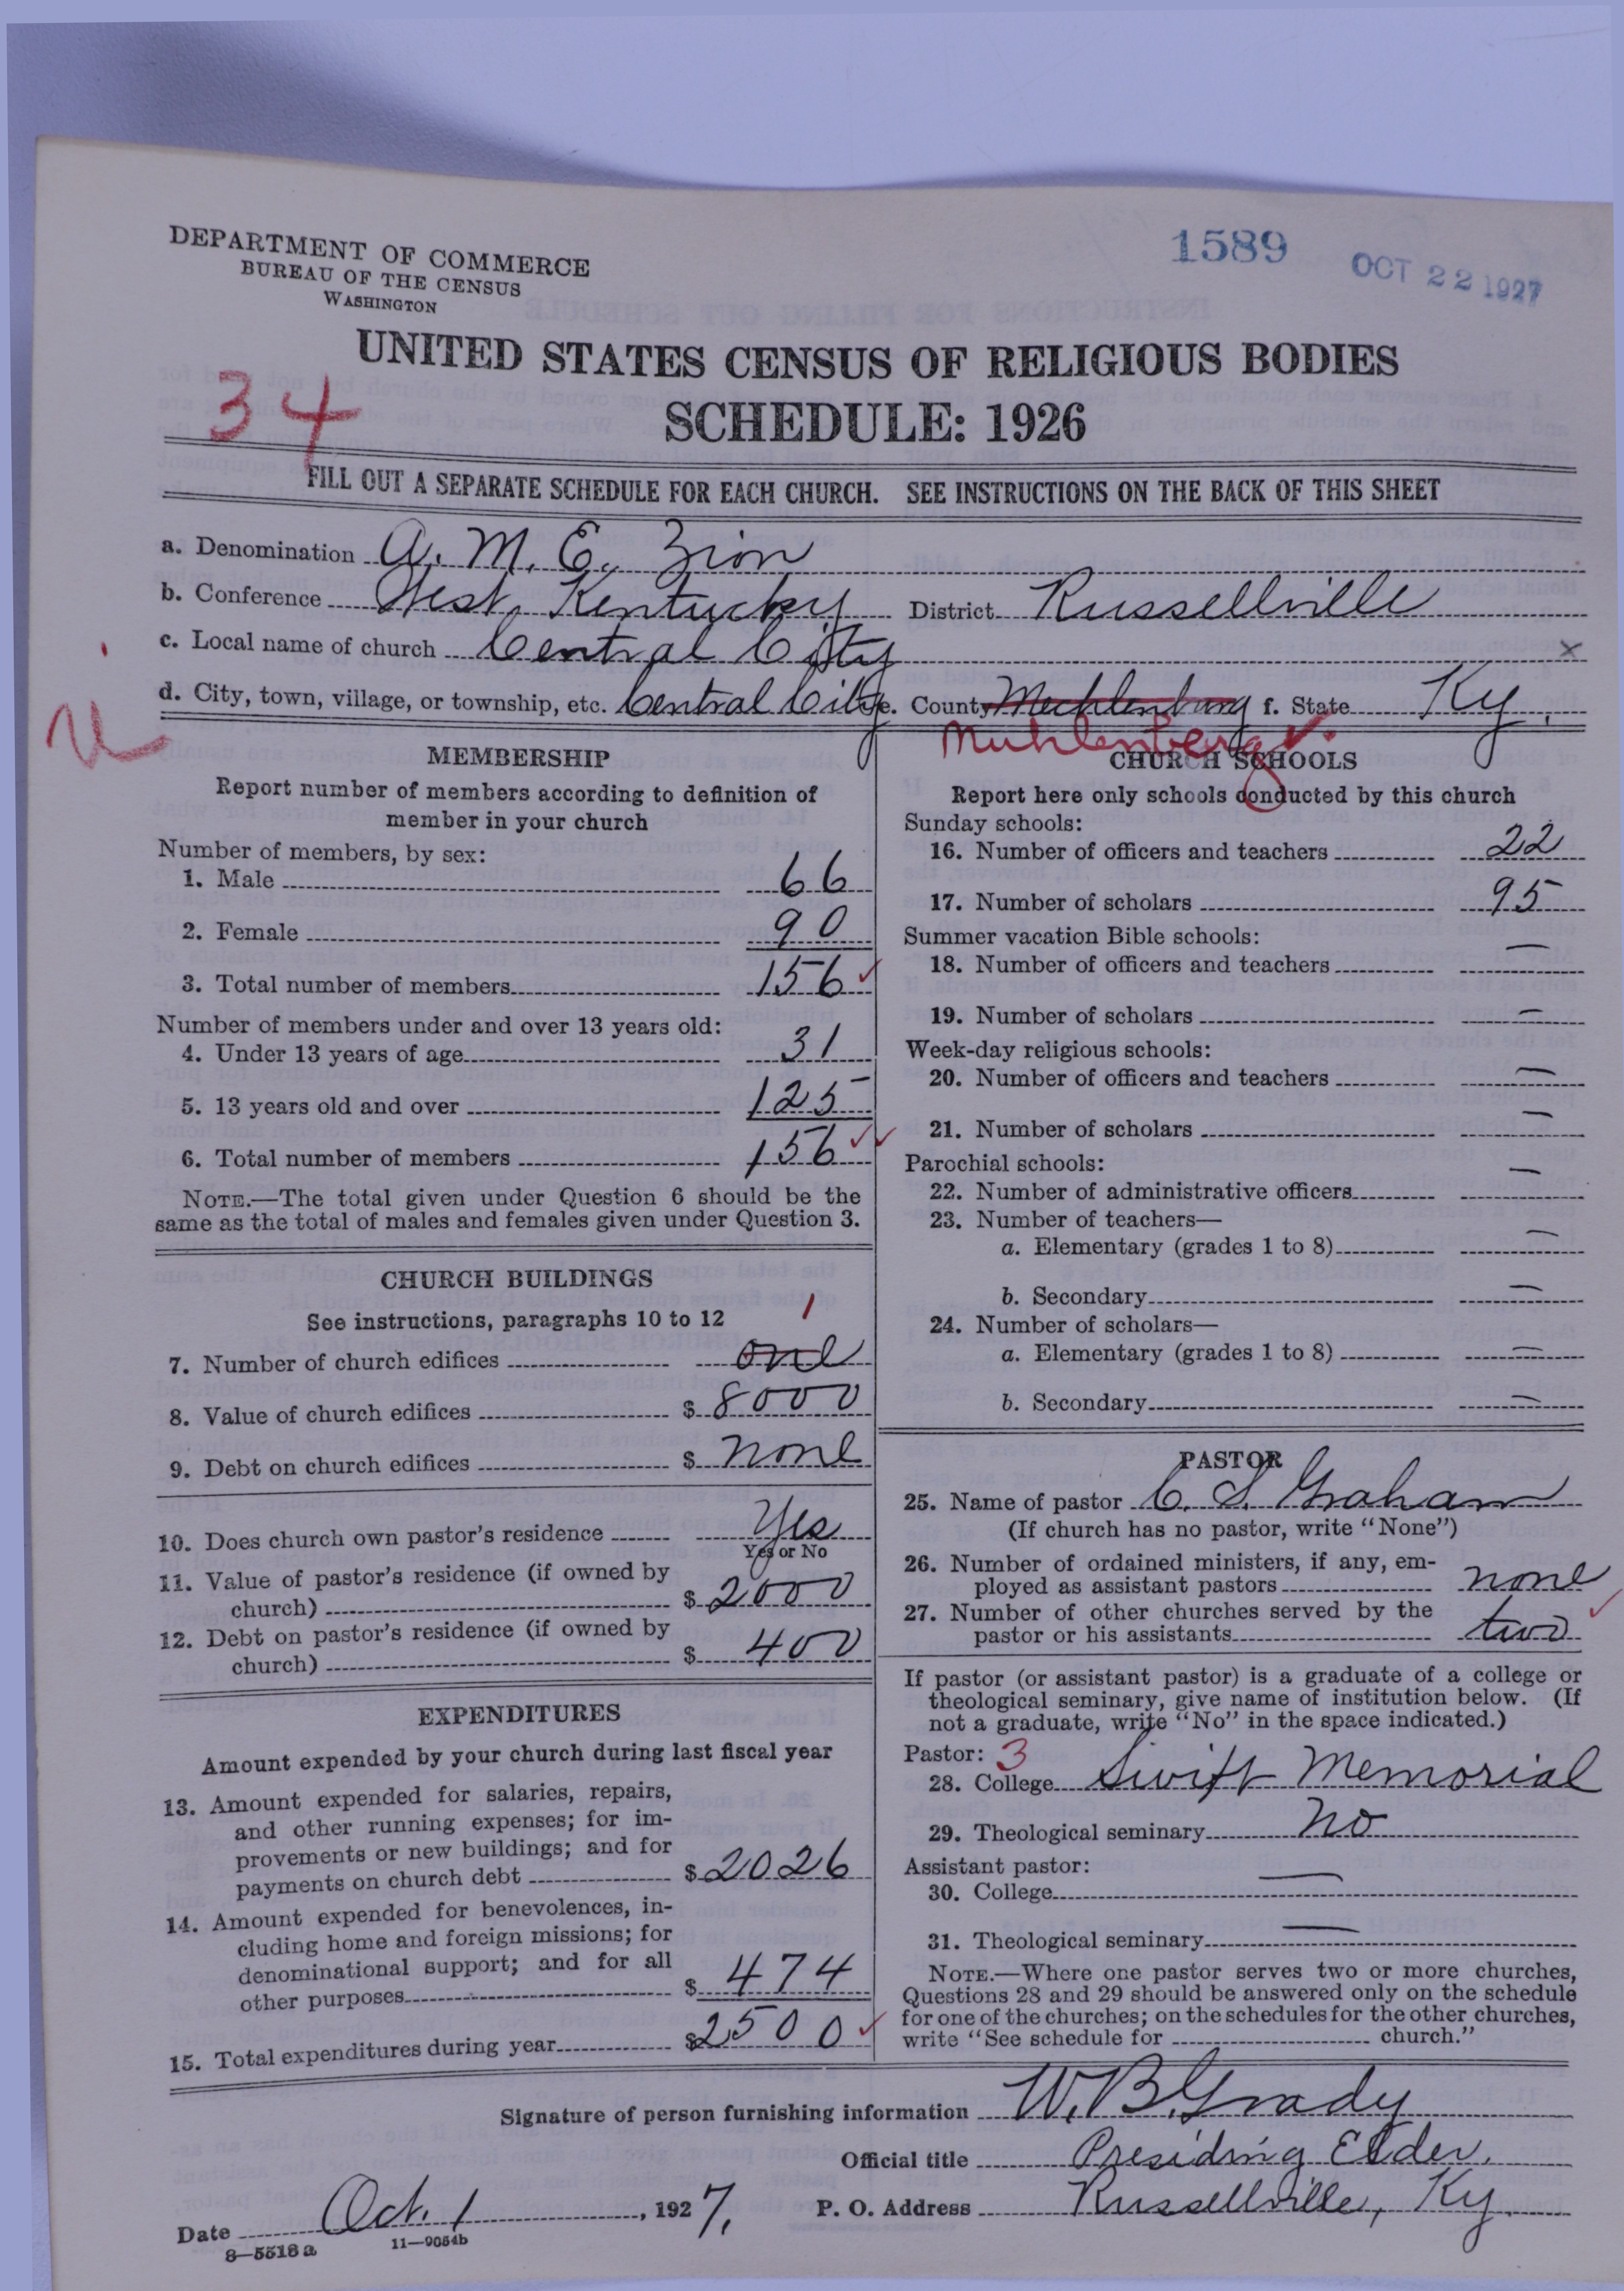 DEPARTMENT OF COMMERCE
BUREAU OF THE CENSUS
WASHINGTON
1589
OCT 22 1927
UNITED STATES CENSUS OF RELIGIOUS BODIES
34
SCHEDULE: 1926
FILL OUT A SEPARATE SCHEDULE FOR EACH CHURCH. SEE INSTRUCTIONS ON THE BACK OF THIS SHEET
a. Denomination A. M. E. Zion
b. Conference West Kentucky District Russellville
c. Local name of church Central City x
d. City, town, village, or township, etc. Central City e. County Mechlenburg f. State Ky.
Muhlenberg ✓
MEMBERSHIP
Report number of members according to definition of
member in your church
Number of members, by sex:
1. Male 66
2. Female 90
3. Total number of members 156 ✓
Number of members under and over 13 years old:
4. Under 13 years of age 31
5. 13 years old and over 125
6. Total number of members 156 ✓✓
NOTE.—The total given under Question 6 should be the
same as the total of males and females given under Question 3.
CHURCH BUILDINGS
See instructions, paragraphs 10 to 12
1
7. Number of church edifices one
8. Value of church edifices $ 8000
9. Debt on church edifices $ none
10. Does church own pastor's residence Yes
Yes or No
11. Value of pastor's residence (if owned by
church) $ 2000
12. Debt on pastor's residence (if owned by
church) $ 400
EXPENDITURES
Amount expended by your church during last fiscal year
13. Amount expended for salaries, repairs,
and other running expenses; for im-
provements or new buildings; and for
payments on church debt $ 2026
14. Amount expended for benevolences, in-
cluding home and foreign missions; for
denominational support; and for all
other purposes $ 474
15. Total expenditures during year $2500 ✓
CHURCH SCHOOLS
Report here only schools conducted by this church
Sunday schools:
16. Number of officers and teachers 22
17. Number of scholars 95
Summer vacation Bible schools:
18. Number of officers and teachers —
19. Number of scholars —
Week-day religious schools:
20. Number of officers and teachers —
21. Number of scholars —
Parochial schools:
22. Number of administrative officers —
23. Number of teachers—
a. Elementary (grades 1 to 8) —
b. Secondary —
24. Number of scholars—
a. Elementary (grades 1 to 8) —
b. Secondary —
PASTOR
25. Name of pastor C. S. Graham
(If church has no pastor, write "None")
26. Number of ordained ministers, if any, em-
ployed as assistant pastors none
27. Number of other churches served by the
pastor or his assistants two ✓
If pastor (or assistant pastor) is a graduate of a college or
theological seminary, give name of institution below. (If
not a graduate, write "No" in the space indicated.)
Pastor: 3
28. College Swift Memorial
29. Theological seminary No
Assistant pastor:
30. College —
31. Theological seminary —
NOTE.—Where one pastor serves two or more churches,
Questions 28 and 29 should be answered only on the schedule
for one of the churches; on the schedules for the other churches,
write "See schedule for church."
Signature of person furnishing information W. B. Grady
Official title Presiding Elder.
Date Oct. 1, 1927. P. O. Address Russellville, Ky.
8—5518a 11—9054b